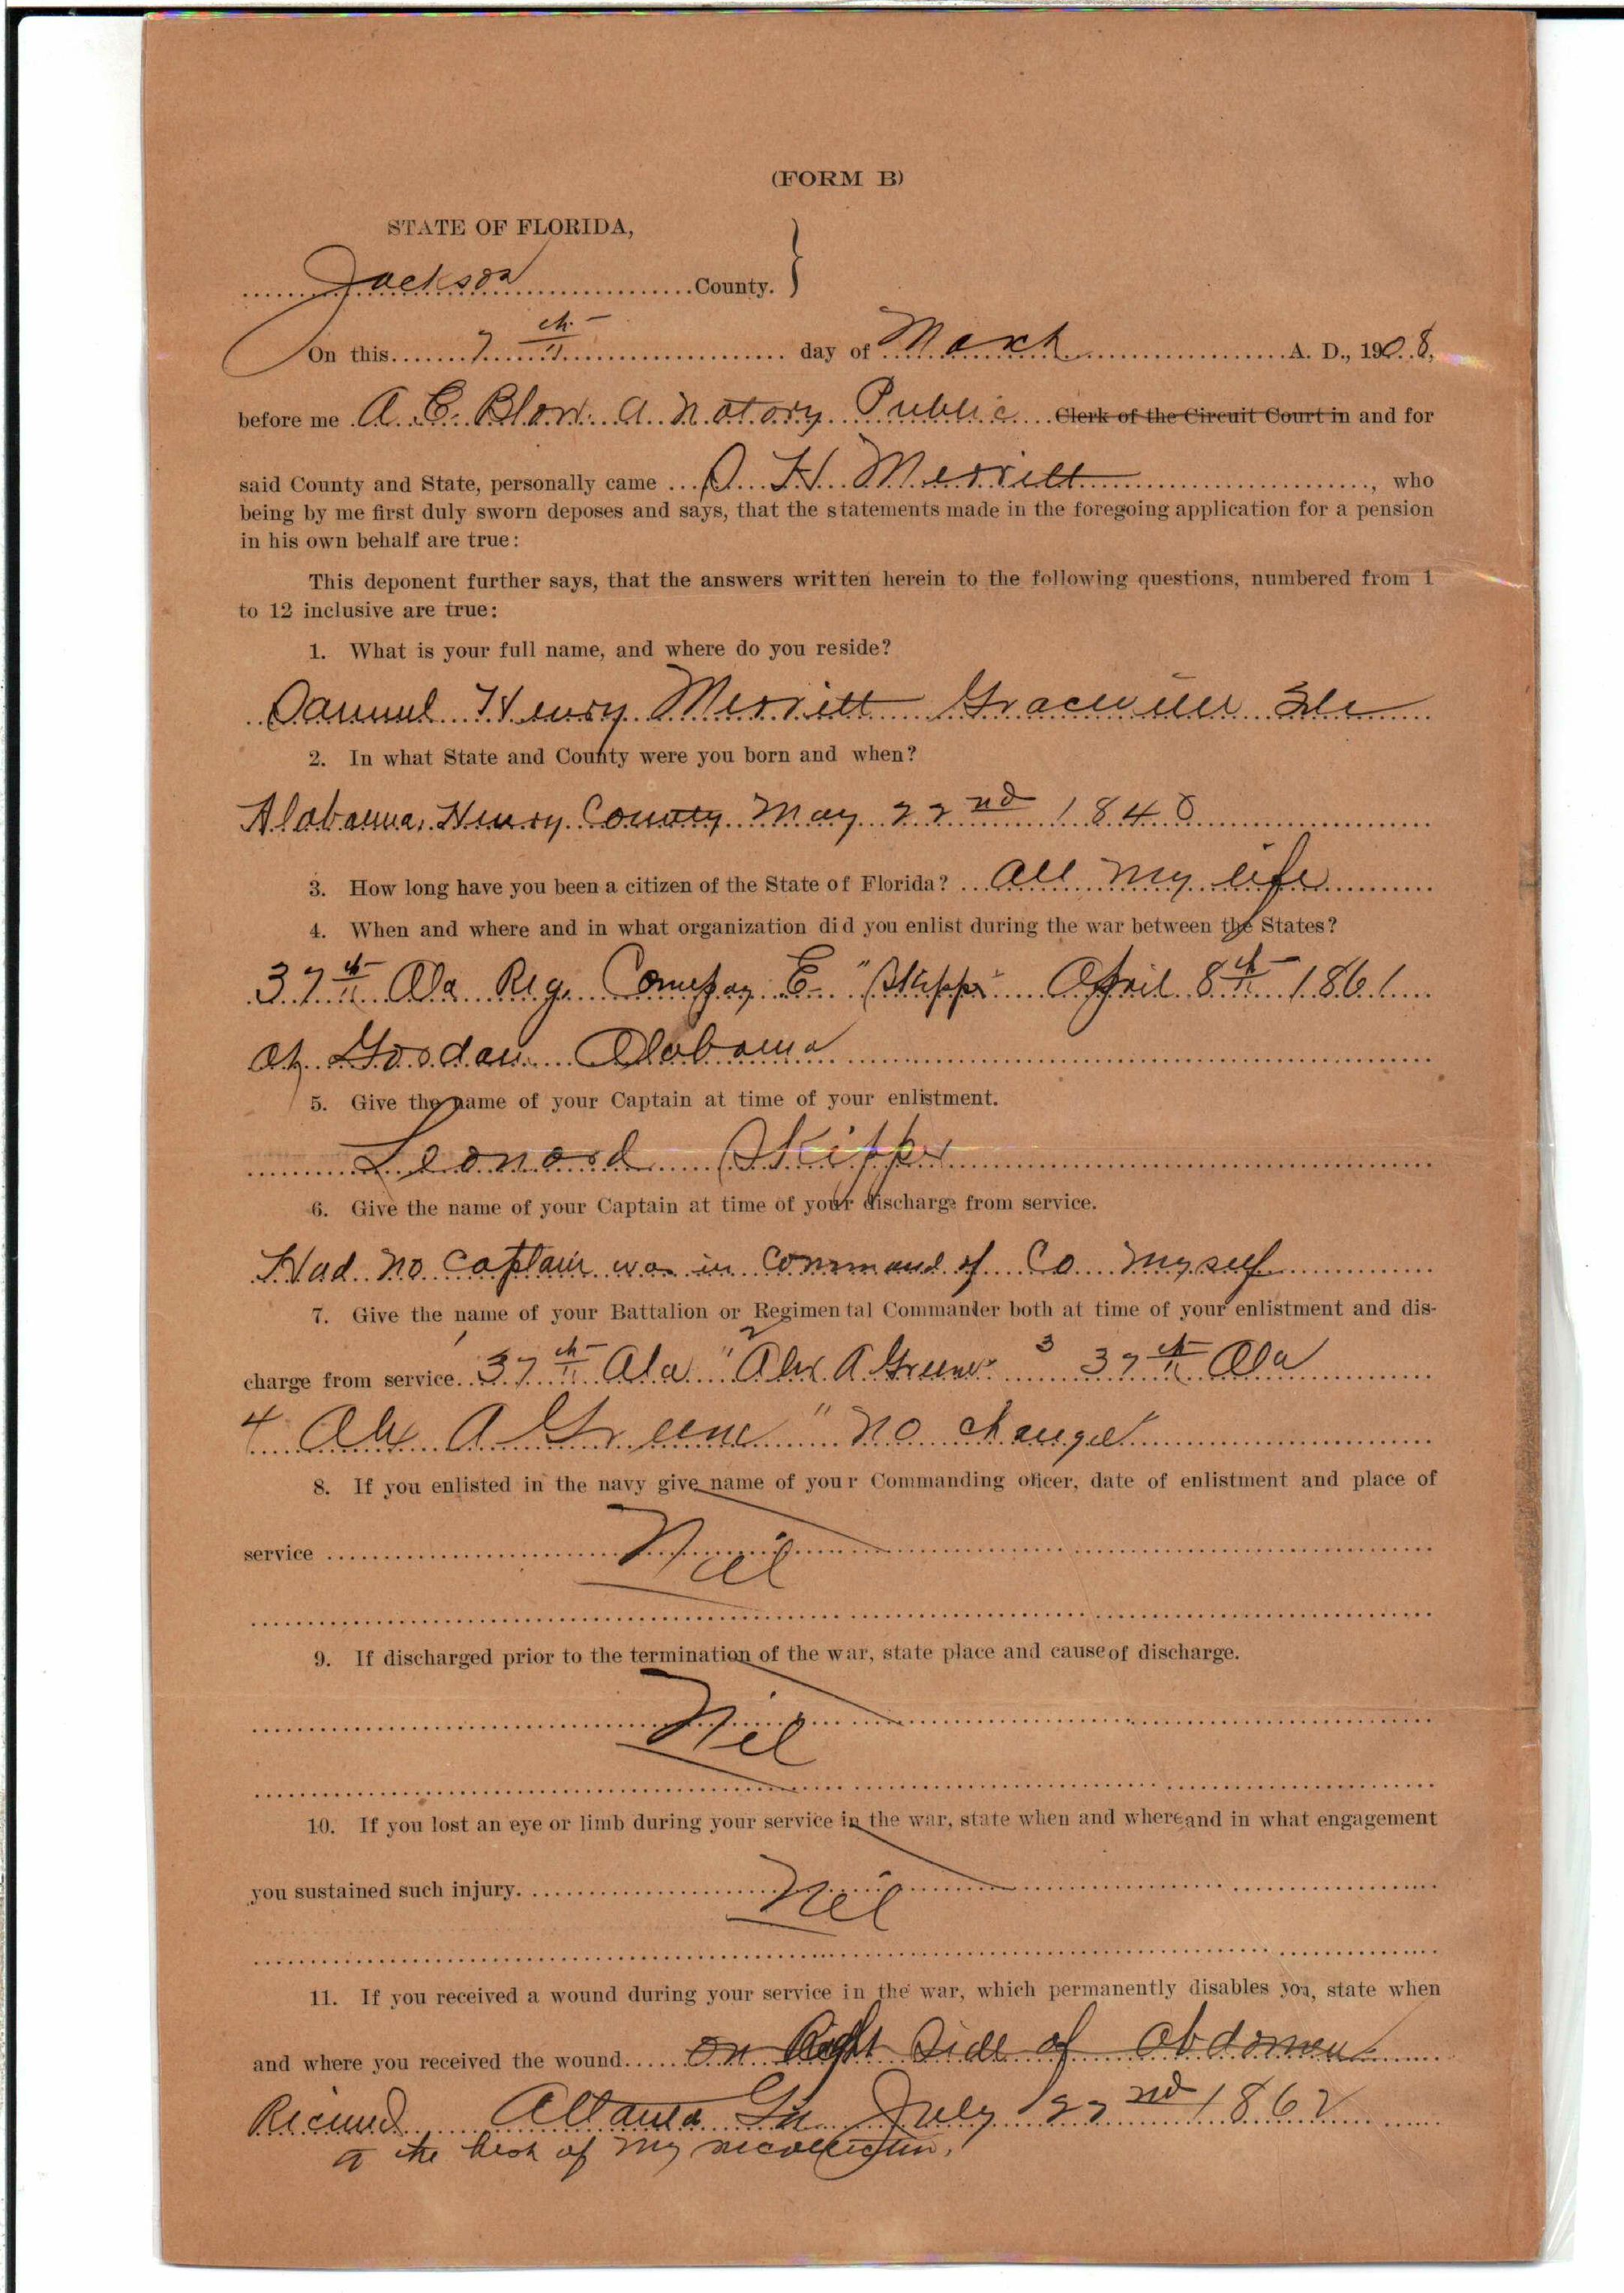 (FORM B)
STATE OF FLORIDA,
Jackson County.
On this 7th day of March A. D., 1908,
before me A. C. Blow. a Notary Public Clerk of the Circuit Court in and for
said County and State, personally came S. H. Merritt, who
being by me first duly sworn deposes and says, that the statements made in the foregoing application for a pension
in his own behalf are true:
This deponent further says, that the answers written herein to the following questions, numbered from 1
to 12 inclusive are true:
1. What is your full name, and where do you reside?
Samuel Henry Merritt Graceville Fla
2. In what State and County were you born and when?
Alabama, Henry County May 22nd 1840
3. How long have you been a citizen of the State of Florida? All my life
4. When and where and in what organization did you enlist during the war between the States?
37th Ala Reg. Company E "Skipper" April 8th 1861
at Alabama
5. Give the name of your Captain at time of your enlistment.
Leonard Skipper
6. Give the name of your Captain at time of your discharge from service.
Had no captain was in command of Co myself
7. Give the name of your Battalion or Regimental Commander both at time of your enlistment and dis-
charge from service. 37th Ala 2 "Alex A Greene" 3 37th Ala
4 Alex A Greene " no change
8. If you enlisted in the navy give name of your Commanding officer, date of enlistment and place of
service Nil
9. If discharged prior to the termination of the war, state place and cause of discharge.
Nil
10. If you lost an eye or limb during your service in the war, state when and where and in what engagement
you sustained such injury. Nil
11. If you received a wound during your service in the war, which permanently disables you, state when
and where you received the wound. on Right Side of abdomen
Received Atlanta Ga July 22nd 1862
to the best of my recollection.